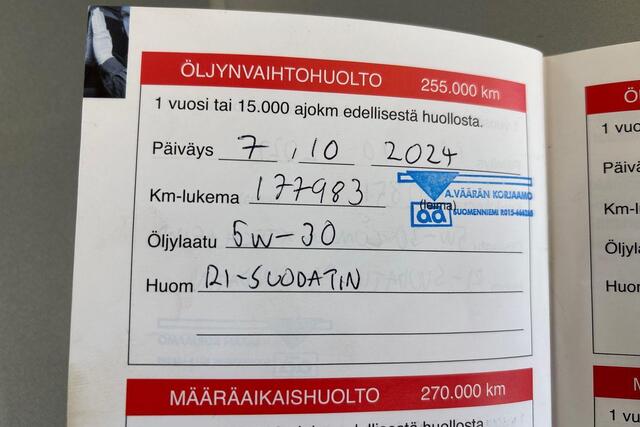 ÖLJYNVAIHTOHUOLTO 255.000 km
1 vuosi tai 15.000 ajokm edellisestä huollosta.
Päiväys 7 . 10 2024
Km-lukema 177983
(leima)
A.VÄÄRÄN KORJAAMO
SUOMENNIEMI
Öljylaatu 5W-30
Huom RI-SUODATIN
MÄÄRÄAIKAISHUOLTO 270.000 km
Ö
1 vuo
Päivä
Km-l
Öljyla
Huom
M
1 vu